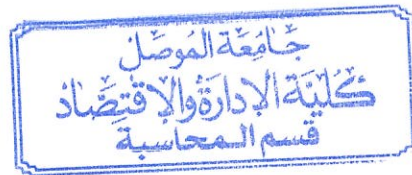 جَامِعَة المُوصَل
كُليَّة الإدارَة والإقتِصَاد
قسم المحاسبة